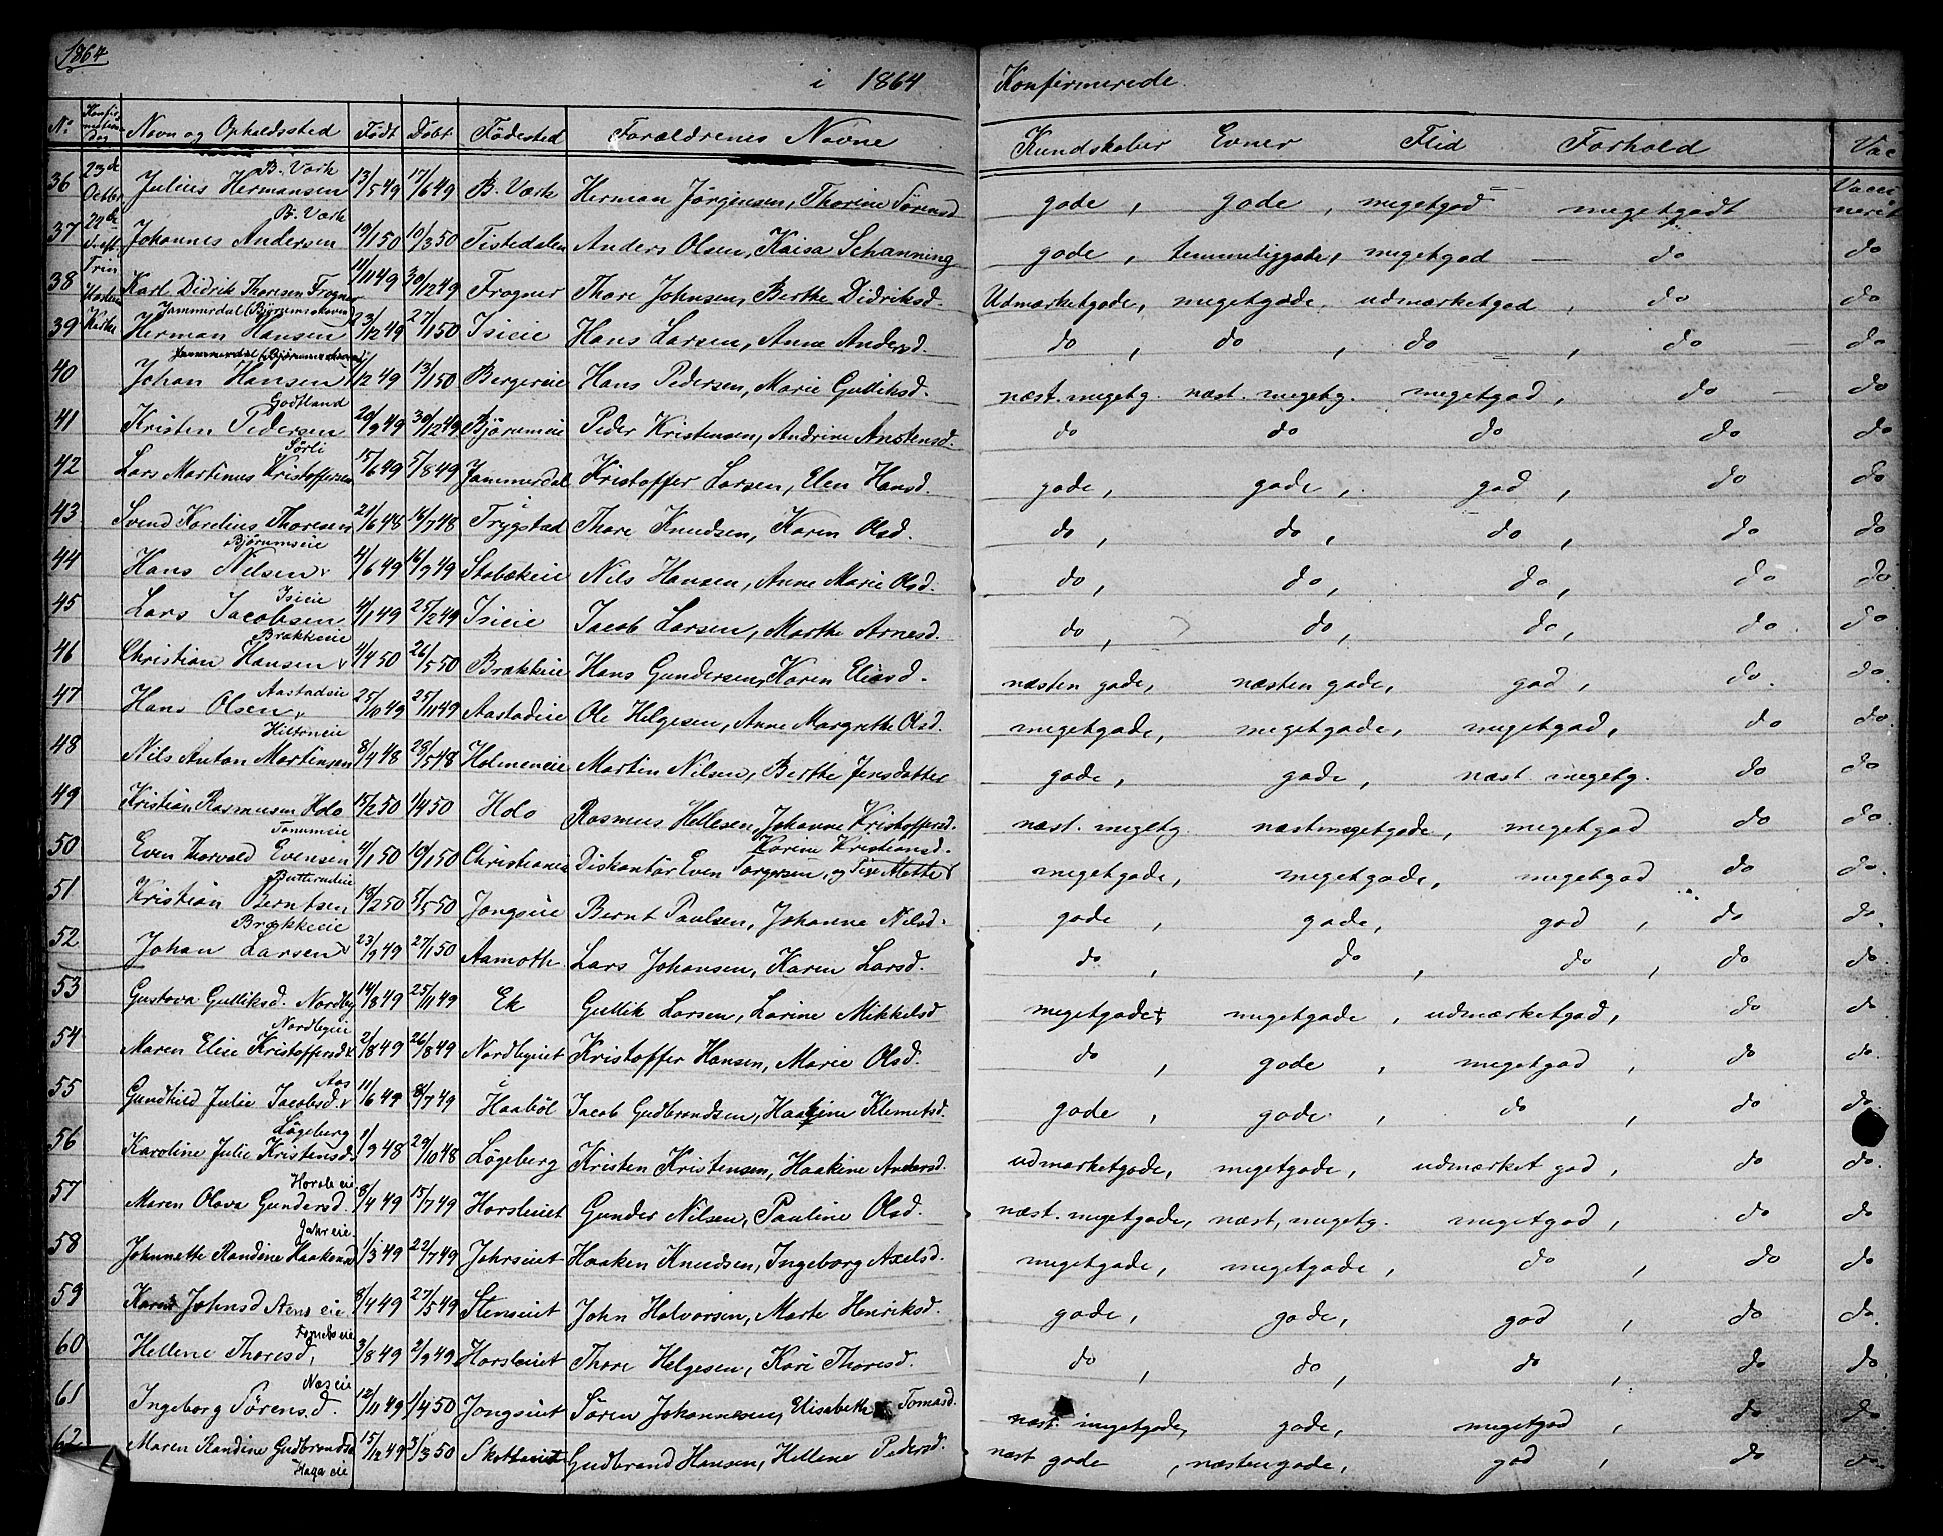 1864
i 1864 Konfirmerede.
No. Konfirmations Dag Navn og Opholdssted Födt Döbt Födested Forældrenes Navne Kundskaber Evner Flid Forhold Vac
B. Værk
36 23d Octbr. Julius Hermansen 13/5 49 17/6 49 B. Værk Herman Jörgensen, Thorine Sörensd gode, gode, megetgod megetgodt Vaccineret
B. Værk
37 22de S. eft. Johannes Andersen 19/1 50 10/3 50 Tistedalen Anders Olsen, Kaisa Schanning gode, temmeliggode, megetgod do do
38 Trin Karl Didrik Thoresen Frogner 11/11 49 30/12 49 Frogner Thore Johnsen, Berthe Didriksd. Udmærketgode, megetgode, udmærketgod, do do
Jammerdal (Bjørumsskoven)
39 Herman Hansen 23/12 49 27/1 50 Isieie Hans Larsen, Anne Andersd. do, do, do, do do
Jammerdal (Bjørumsskoven)
40 Johan Hansen /12 49 13/1 50 Bergereie Hans Pedersen, Marie Gulliksd. næst. megetg. næst. megetg. megetgod, do do
Godtland
41 Kristen Pedersen 20/9 49 30/12 49 Bjørumeie Peder Kristensen, Andrine Anstensd. do do do do do
Sörli
42 Lars Martinus Kristoffersen 15/6 49 5/8 49 Jammerdal Kristoffer Larsen, Elen Hansd. gode, gode, god, do do
43 Svend Korelius Thoresen 21/6 48 16/7 48 Trygstad Thore Knudsen, Karen Olsd. do, do, do, do do
Bjørumseie
44 Hans Nilsen 4/6 49 16/9 49 Stabækeie Nils Hansen, Anne Marie Olsd. do, do, do, do do
Isieie
45 Lars Jacobsen 4/1 49 25/2 49 Isieie Jacob Larsen, Marthe Arnesd. do, do, do, do. do.
Brækkeie
46 Christian Hansen 4/4 50 26/5 50 Brækkeie Hans Gundersen, Karen Eliasd. næsten gode, næsten gode, god, do. do.
Aastadeie
47 Hans Olsen 25/10 49 25/11 49 Aastadeie Ole Helgesen, Anne Margrethe Olsd. megetgode, megetgode, megetgod, do do.
Hiltoneie
48 Nils Anton Martinsen 8/4 48 28/5 48 Holmeneie Martin Nilsen, Berthe Jensdatter gode, gode, næst. megetg. do do
49 Kristian Rasmusen Holo 15/2 50 1/4 50 Holo Rasmus Hellesen, Johanne Kristoffersd. næst. megetg. næstmegetgode, megetgod do do
Tanumeie Karine Kristiansd.
50 Even Thorvald Evensen 4/1 50 10/1 50 Christiania Diskantör Even Torgersen, og megetgode, megetgode, megetgod do do.
Butterudeie
51 Kristian Berntsen 18/2 50 9/5 50 Jongseie Bernt Paulsen, Johanne Nilsd. gode, gode, god, do do.
Brækkeeie
52 Johan Larsen 23/9 49 27/1 50 Aamoth Lars Johansen, Karen Larsd. do, do, do, do do.
53 Gustava Gulliksd. Nordby 14/8 49 25/11 49 Ek Gullik Larsen, Larine Mikkelsd megetgode, megetgode, udmærketgod, do do
Nordbyeie
54 Maren Elise Kristoffersd 2/8 49 26/8 49 Nordbyeiet Kristoffer Hansen, Marie Olsd. do, gode, megetgod, do do.
Aas
55 Gundhild Julie Jacobsd. 11/6 49 8/7 49 Haabøl Jacob Gudbrandsen, Haakine Klemetsd. gode, gode, do, do do.
Lögeberg
56 Karoline Julie Kristensd. 1/9 48 29/10 48 Lögeberg Kristen Kristensen, Haakine Andersd. udmærketgode, megetgode, udmærket god, do do.
Horsleeie
57 Maren Olava Gundersd. 8/4 49 15/7 49 Horsleeiet Gunder Nilsen, Pauline Olsd. næst. megetgode, næst, megetg. megetgod, do do
Jahreie.
58 Johnette Randine Haakensd 1/3 49 22/7 49 Jahrseiet Haaken Knudsen, Ingeborg Axelsd. megetgode, megetgode, do, do do
59 Karen Johnsd Aens eie 8/4 49 27/5 49 Stenseiet John Halvorsen, Marte Henriksd. gode, gode, god, do do
60 Hellene Thoresd, 3/8 49 2/9 49 Horsleeiet Thore Helgesen, Kari Thoresd. do, do, do, do do
Næseie
61 Ingeborg Sörensd. 12/11 49 1/4 50 Jongseiet Sören Johannesen, Elisabeth Tomasd. næst. megetgode, gode, megetgod, do do
62 Maren Randine Gudbrandsd 15/12 49 3/3 50 Skottaeiet Gudbrand Hansen, Hellene Pedersd. næst gode, næstengode, god, do do.
Haga eie